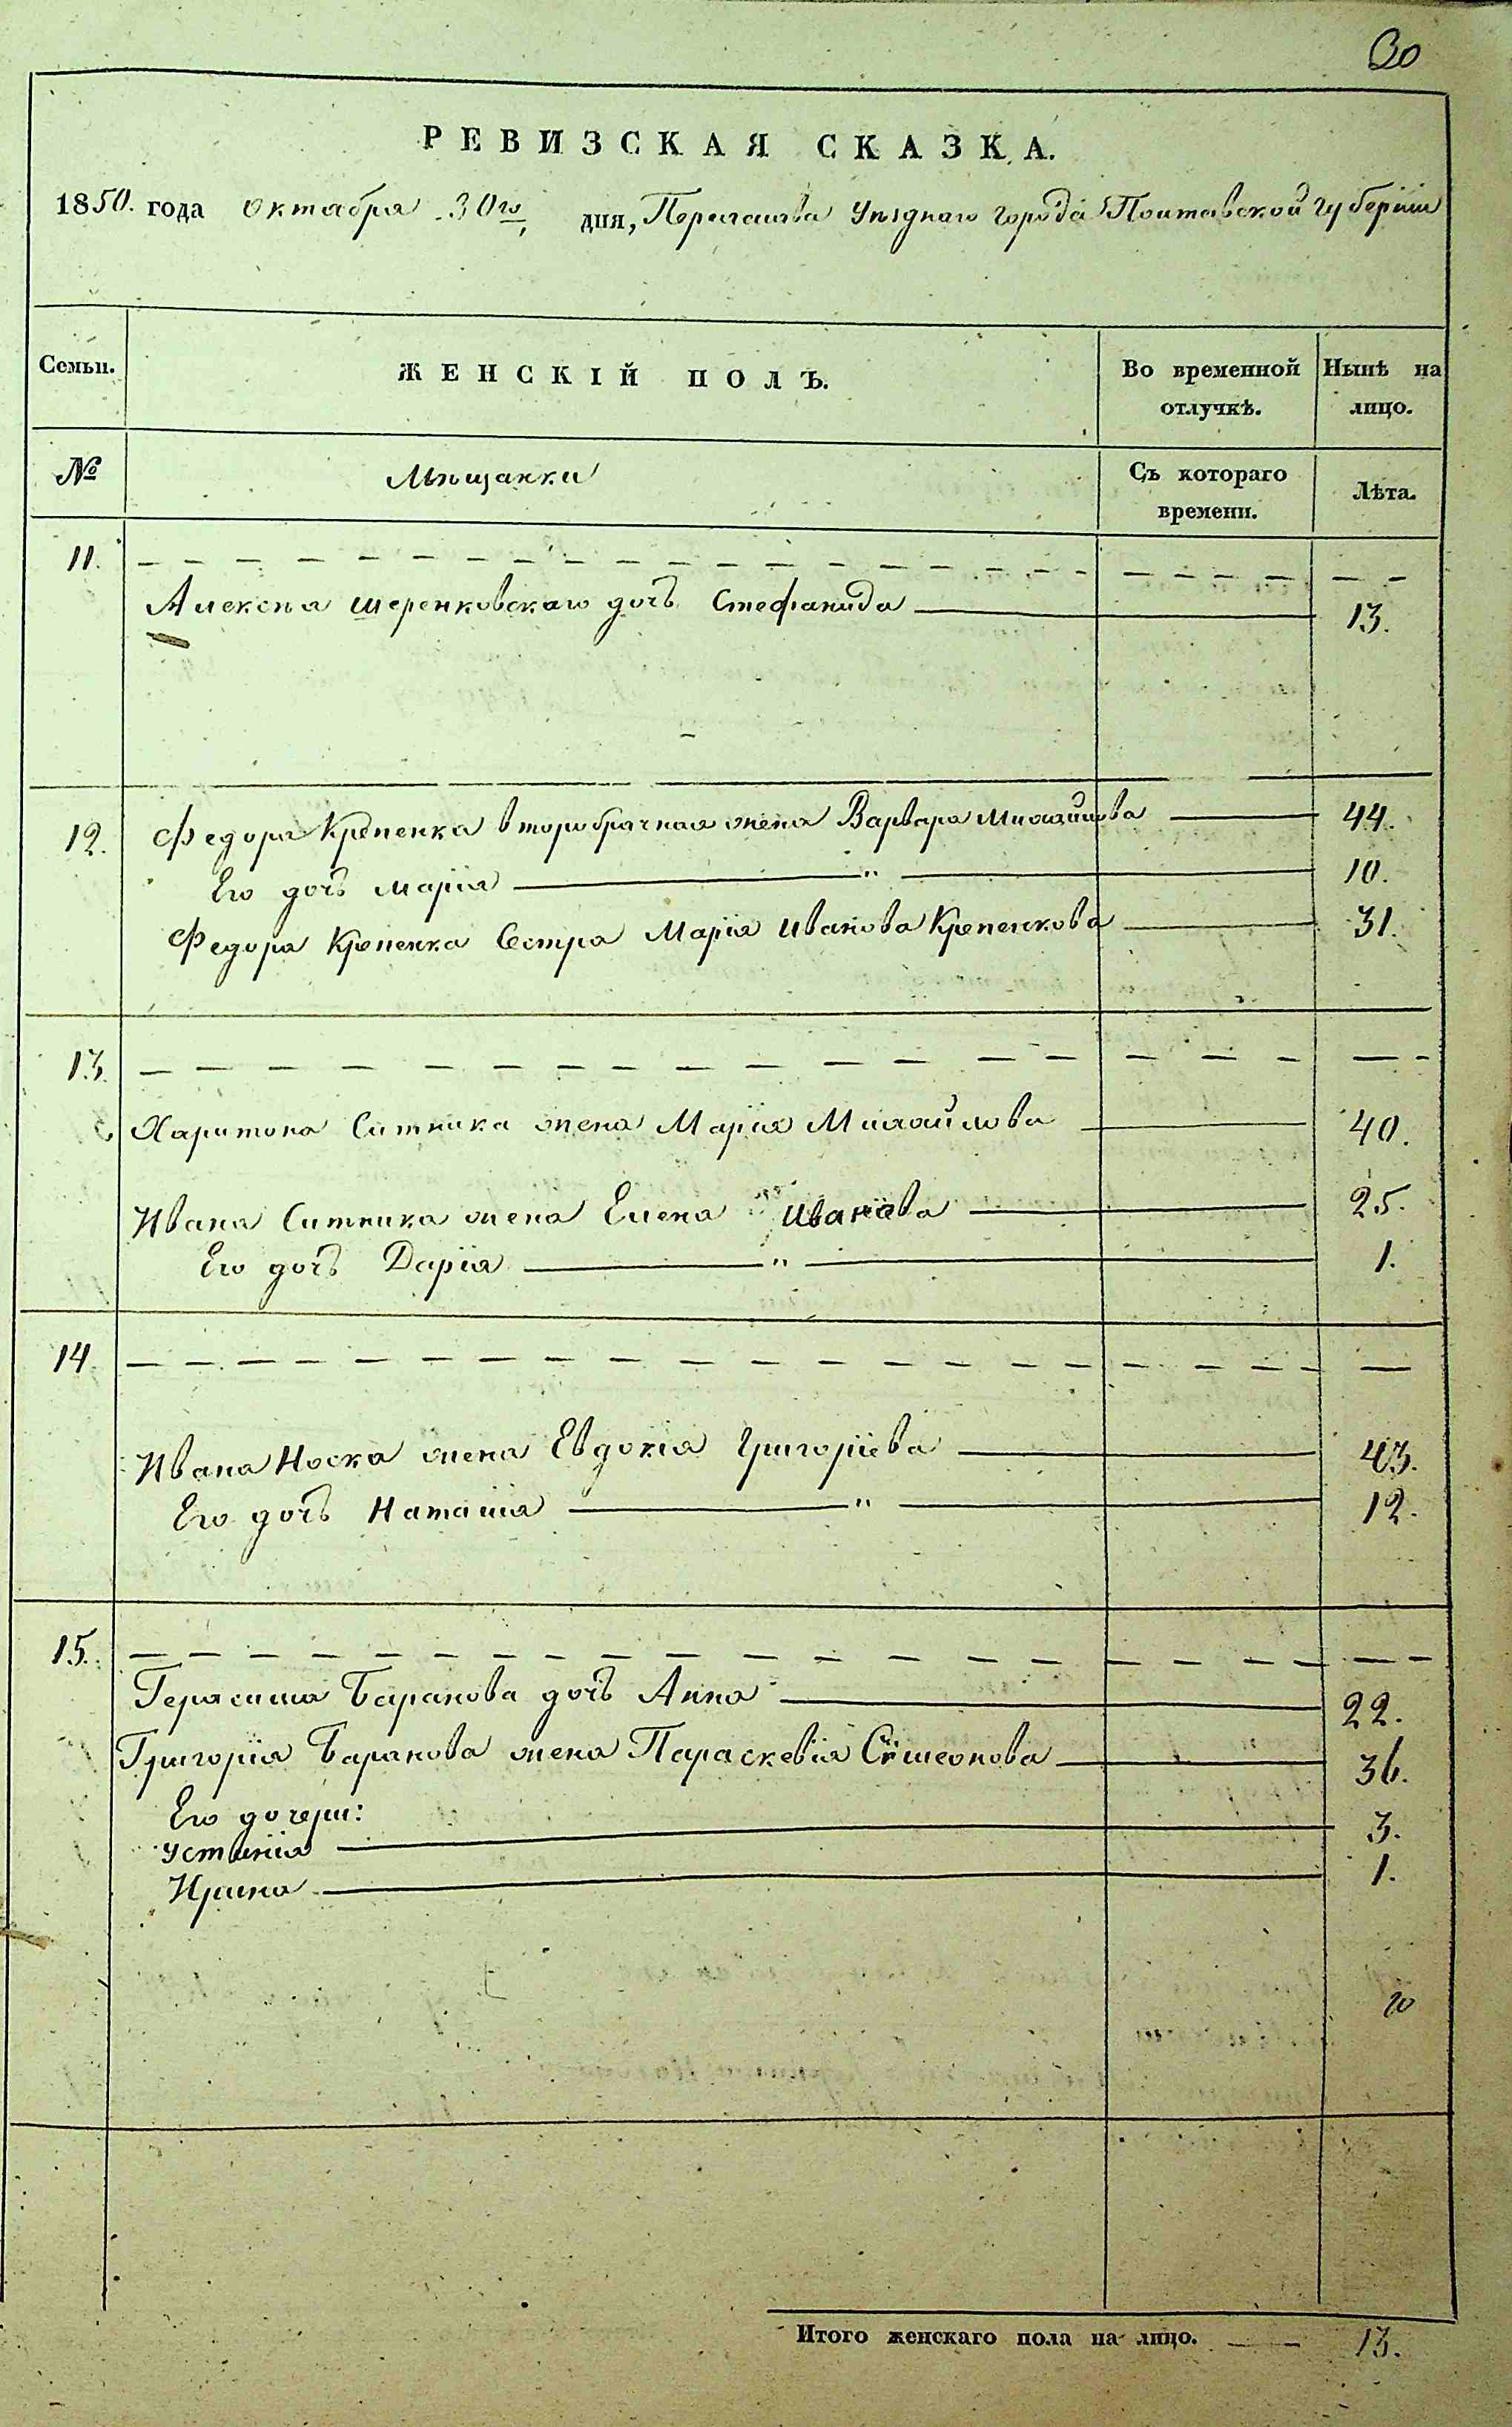 30
РЕВИЗСКАЯ СКАЗКА.
1850. года октября 30го дня, Переяслава уѣзднаго города Полтавской губерніи
Семьи. ЖЕНСКІЙ ПОЛЪ. Во временной отлучкѣ. Нынѣ на лицо.
№ Мѣщанки Съ котораго времени. Лѣта.
11.
Алексѣя Шеренковскаго дочь Стефанида 13.
12. Федора Крепенка второбрачная жена Варвара Михайлова 44.
Его дочь Марія " 10.
Федора Крепенка сестра Марія Иванова Крепенкова 31.
13.
Харитона Ситника жена Марія Михайлова 40.
Ивана Ситника жена Елена Иванова 25.
Его дочь Дарія " 1.
14.
Ивана Носка жена Евдокія Григоріева 43.
Его дочь Наталія " 12.
15.
Герасима Баранова дочь Анна 22.
Григорія Баранова жена Параскевія Симеонова 36.
Его дочери:
Устинія 3.
Ирина 1.
Итого женскаго пола на лицо. 13.